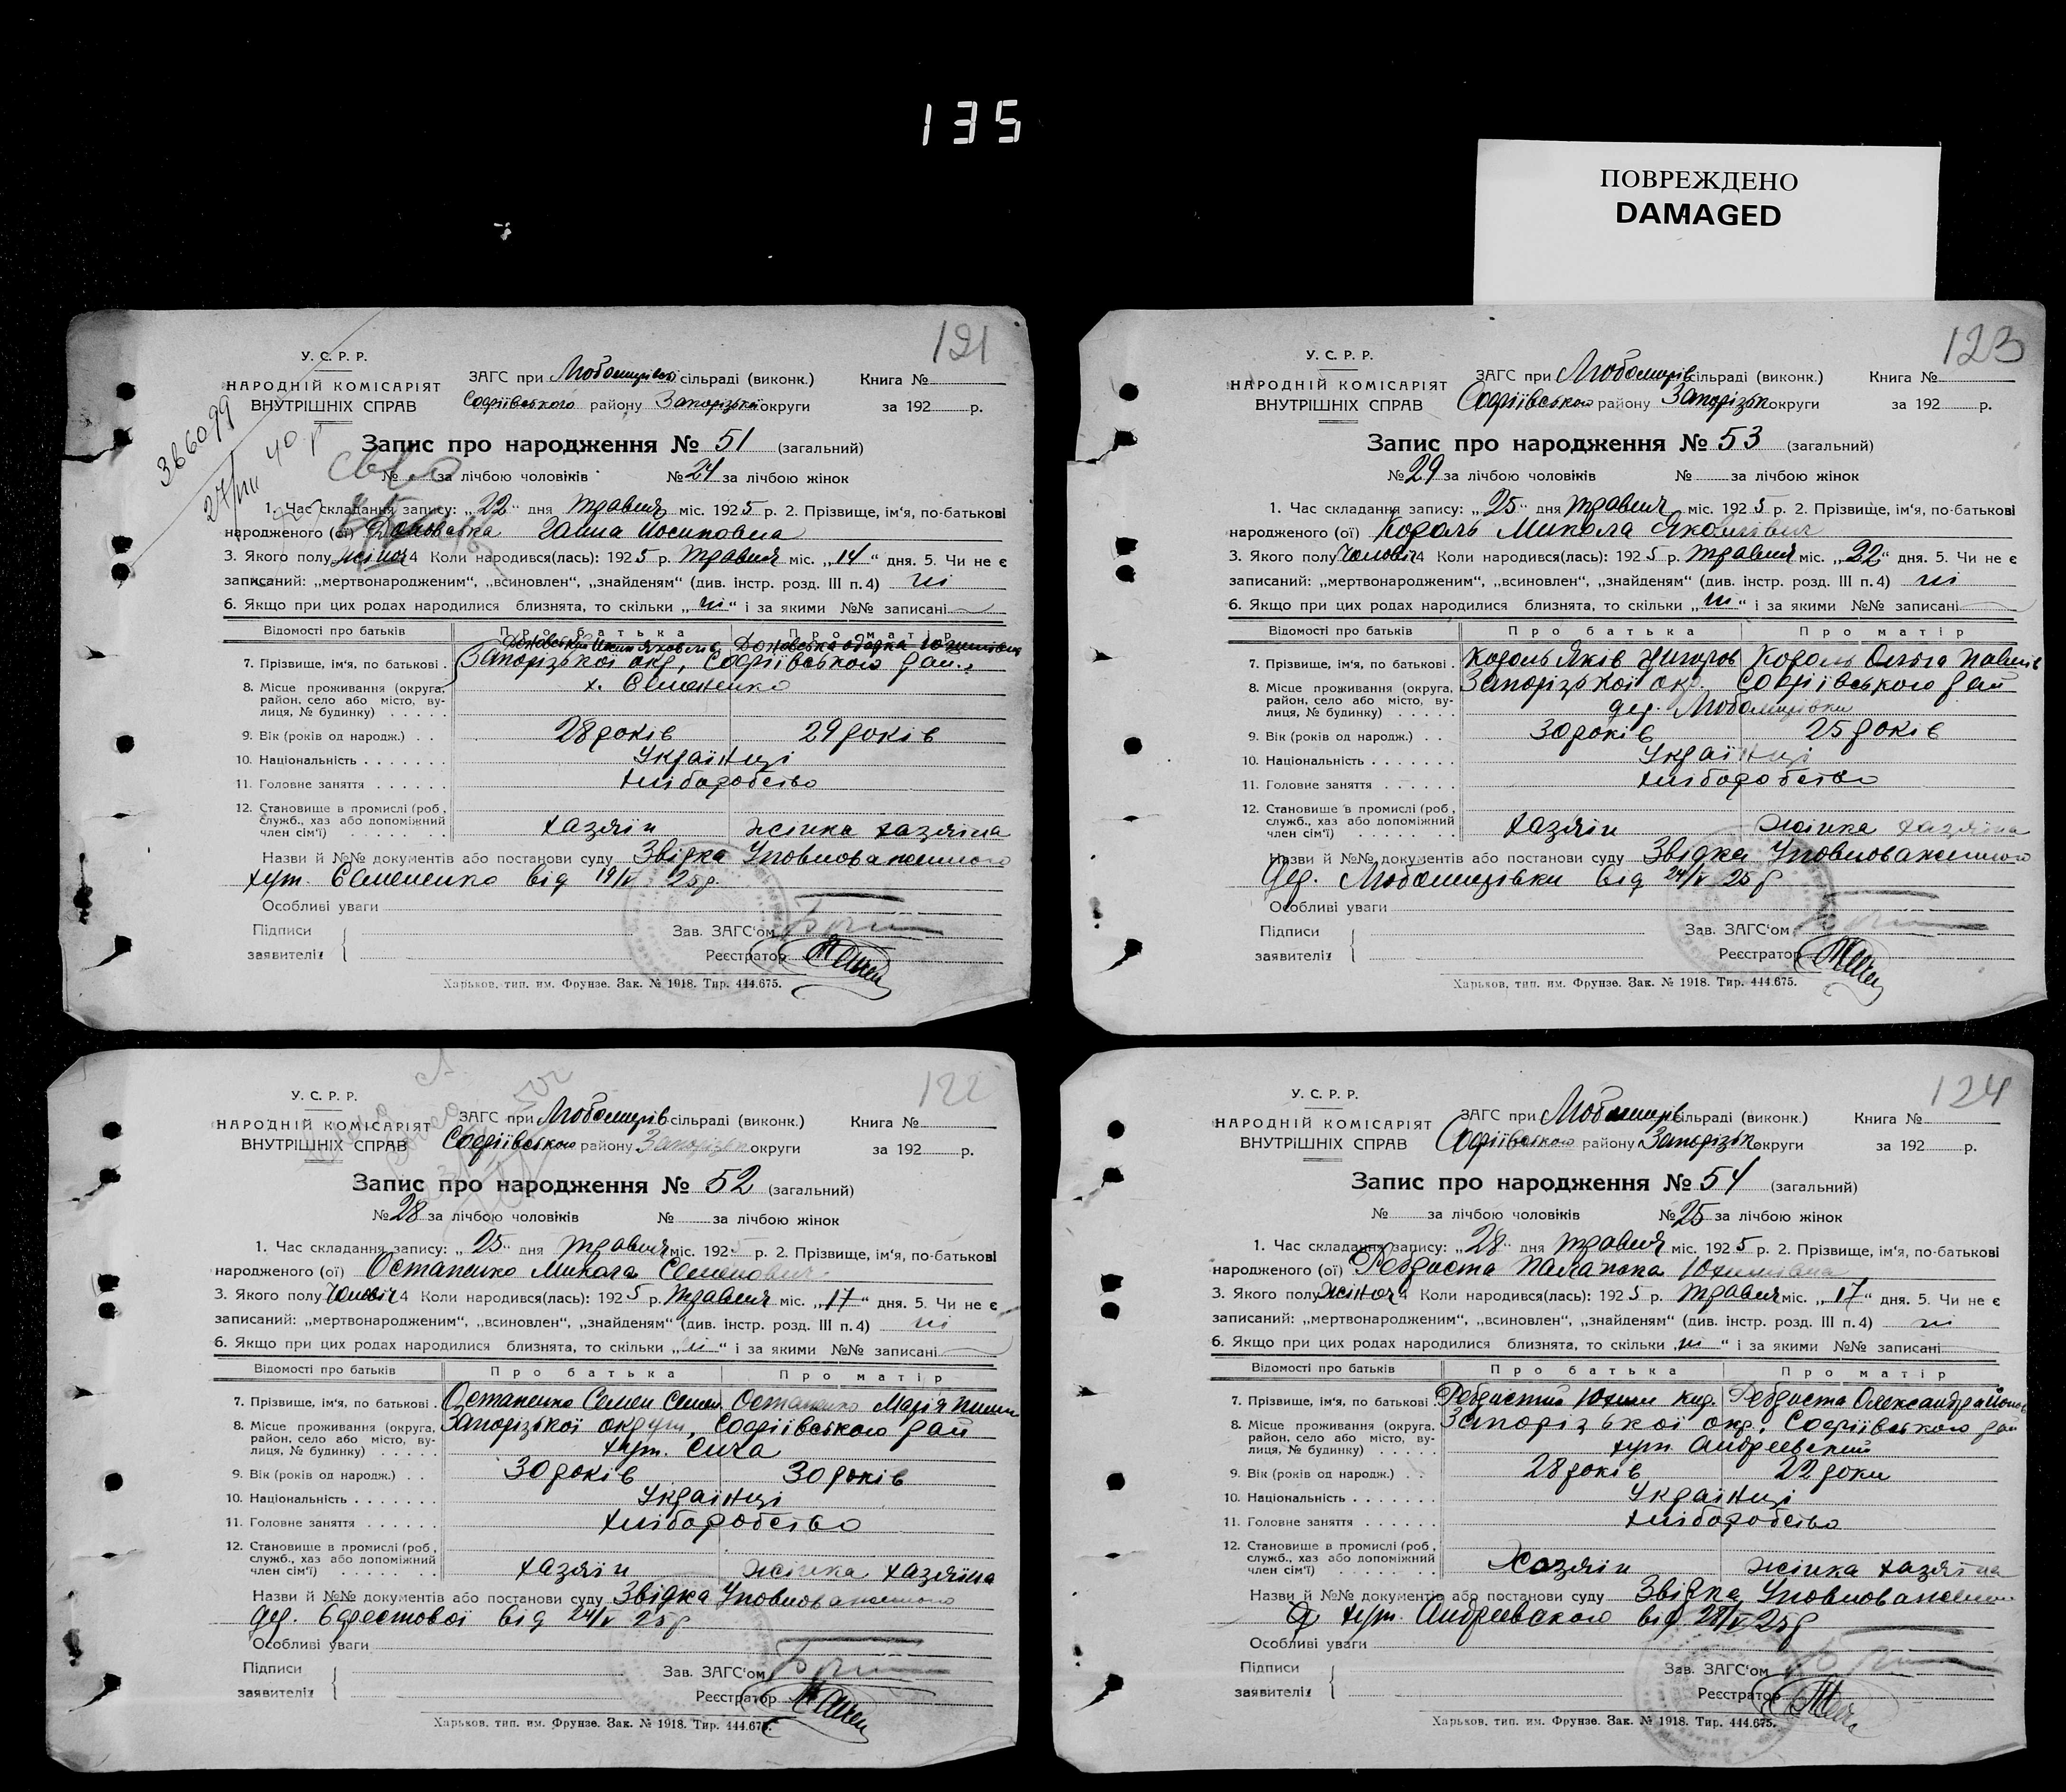 135
ПОВРЕЖДЕНО
DAMAGED
121
У. С. Р. Р.
НАРОДНІЙ КОМІСАРІЯТ
ВНУТРІШНІХ СПРАВ
ЗАГС при Любомирівс сільраді (виконк.) Книга №
Софіївського району Запорізької округи за 192 р.
386099
Запис про народження № 51 (загальний)
№ за лічбою чоловіків № 24 за лічбою жінок
1. Час складання запису: „22“ дня травня міс. 1925 р. 2. Прізвище, ім'я, по-батькові
народженого (ої) Ганна Йосиповна
3. Якого полу жіноч 4 Коли народився(лась): 1925 р. травня міс. „14“ дня. 5. Чи не є
записаний: „мертвонародженим“, „всиновлен“, „знайденям“ (див. інстр. розд. III п. 4) ні
6. Якщо при цих родах народилися близнята, то скільки „ні“ і за якими №№ записані
Відомості про батьків Про батька Про матір
7. Прізвище, ім'я, по батькові .
Запорізької окр, Софіївського рай.,
8. Місце проживання (округа, район, село або місто, вулиця, № будинку) х. Семененко
9. Вік (років од народж.) . . 28 років 29 років
10. Національність . . . . . . . Українці
11. Головне заняття . . . . . . хліборобство
12. Становище в промислі (роб., служб., хаз або допоміжний член сім'ї) хазяїн жінка хазяїна
Назви й №№ документів або постанови суду Звідка Уповноваженного
хут. Семененко від 19/V 25р.
Особливі уваги
Підписи Зав. ЗАГС'ом
заявителіз Реєстратор
Харьков, тип. им. Фрунзе. Зак. № 1918. Тир. 444.675.
123
У. С. Р. Р.
НАРОДНІЙ КОМІСАРІЯТ
ВНУТРІШНІХ СПРАВ
ЗАГС при Любомирів сільраді (виконк.) Книга №
Софіївського району Запорізьк округи за 192 р.
Запис про народження № 53 (загальний)
№ 29 за лічбою чоловіків № за лічбою жінок
1. Час складання запису: „25“ дня травня міс. 1925 р. 2. Прізвище, ім'я, по-батькові
народженого (ої) Король Микола Яковлівич
3. Якого полу Чоловіч 4 Коли народився(лась): 1925 р. травня міс. „22“ дня. 5. Чи не є
записаний: „мертвонародженим“, „всиновлен“, „знайденям“ (див. інстр. розд. III п. 4) ні
6. Якщо при цих родах народилися близнята, то скільки „ні“ і за якими №№ записані
Відомості про батьків Про батька Про матір
7. Прізвище, ім'я, по батькові . Король Яків Король Ольга Павлів
8. Місце проживання (округа, район, село або місто, вулиця, № будинку) Запорізької окр. Софіївського рай
дер. Любомирівки
9. Вік (років од народж.) . . 30 років 25 років
10. Національність . . . . . . . Українці
11. Головне заняття . . . . . . хліборобство
12. Становище в промислі (роб., служб., хаз або допоміжний член сім'ї) хазяїн жінка хазяїна
Назви й №№ документів або постанови суду Звідка Уповноваженного
дер. Любомирівки від 24/V 25р
Особливі уваги
Підписи Зав. ЗАГС'ом
заявителіз Реєстратор
Харьков, тип. им. Фрунзе. Зак. № 1918. Тир. 444.675.
122
У. С. Р. Р.
НАРОДНІЙ КОМІСАРІЯТ
ВНУТРІШНІХ СПРАВ
ЗАГС при Любомирів сільраді (виконк.) Книга №
Софіївського району Запорізьк округи за 192 р.
Запис про народження № 52 (загальний)
№ 28 за лічбою чоловіків № за лічбою жінок
1. Час складання запису: „25“ дня травня міс. 1925 р. 2. Прізвище, ім'я, по-батькові
народженого (ої) Остапенко Микола Семенович
3. Якого полу Чоловіч 4 Коли народився(лась): 1925 р. травня міс. „17“ дня. 5. Чи не є
записаний: „мертвонародженим“, „всиновлен“, „знайденям“ (див. інстр. розд. III п. 4) ні
6. Якщо при цих родах народилися близнята, то скільки „ні“ і за якими №№ записані
Відомості про батьків Про батька Про матір
7. Прізвище, ім'я, по батькові . Остапенко Семен Семен Остапенко Марія
8. Місце проживання (округа, район, село або місто, вулиця, № будинку) Запорізької округи, Софіївського рай
хут. Сича
9. Вік (років од народж.) . . 30 років 30 років
10. Національність . . . . . . . Українці
11. Головне заняття . . . . . . хліборобство
12. Становище в промислі (роб., служб., хаз або допоміжний член сім'ї) хазяїн жінка хазяїна
Назви й №№ документів або постанови суду Звідка Уповноваженного
дер. від 24/V 25р
Особливі уваги
Підписи Зав. ЗАГС'ом
заявителіз Реєстратор
Харьков, тип. им. Фрунзе. Зак. № 1918. Тир. 444.675.
124
У. С. Р. Р.
НАРОДНІЙ КОМІСАРІЯТ
ВНУТРІШНІХ СПРАВ
ЗАГС при Любомирів сільраді (виконк.) Книга №
Софіївського району Запорізьк округи за 192 р.
Запис про народження № 54 (загальний)
№ за лічбою чоловіків № 25 за лічбою жінок
1. Час складання запису: „28“ дня травня міс. 1925 р. 2. Прізвище, ім'я, по-батькові
народженого (ої) Ребриста Палажка Юхимівна
3. Якого полу жіноч 4 Коли народився(лась): 1925 р. травня міс. „17“ дня. 5. Чи не є
записаний: „мертвонародженим“, „всиновлен“, „знайденям“ (див. інстр. розд. III п. 4) ні
6. Якщо при цих родах народилися близнята, то скільки „ні“ і за якими №№ записані
Відомості про батьків Про батька Про матір
7. Прізвище, ім'я, по батькові Ребристий Юхим Ребриста Олександра
8. Місце проживання (округа, район, село або місто, вулиця, № будинку) Запорізької окр, Софіївського рай
хут Андреевский
9. Вік (років од народж.) . . 28 років 22 роки
10. Національність . . . . . . . Українці
11. Головне заняття . . . . . . хліборобство
12. Становище в промислі (роб., служб., хаз або допоміжний член сім'ї) Хозяїн жінка хазяїна
Назви й №№ документів або постанови суду Звідка Уповноважен
хут. Андреевского від 28/V 25р
Особливі уваги
Підписи Зав. ЗАГС'ом
заявителіз Реєстратор
Харьков, тип. им. Фрунзе. Зак. № 1918. Тир. 444.675.